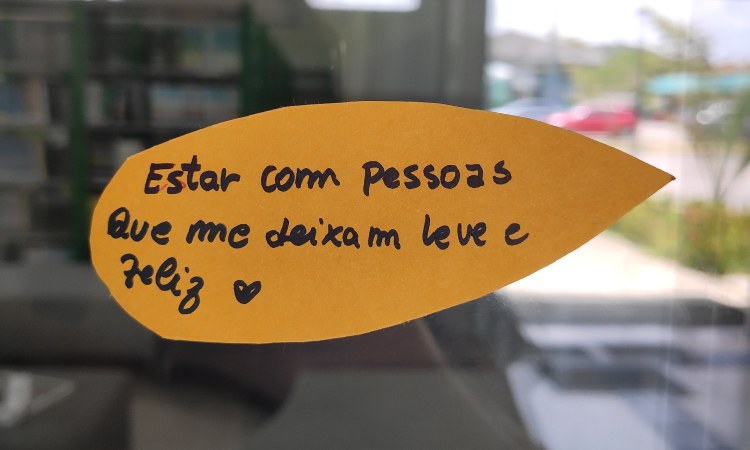 Estar com pessoas
Que me deixam leve e
Feliz ♥